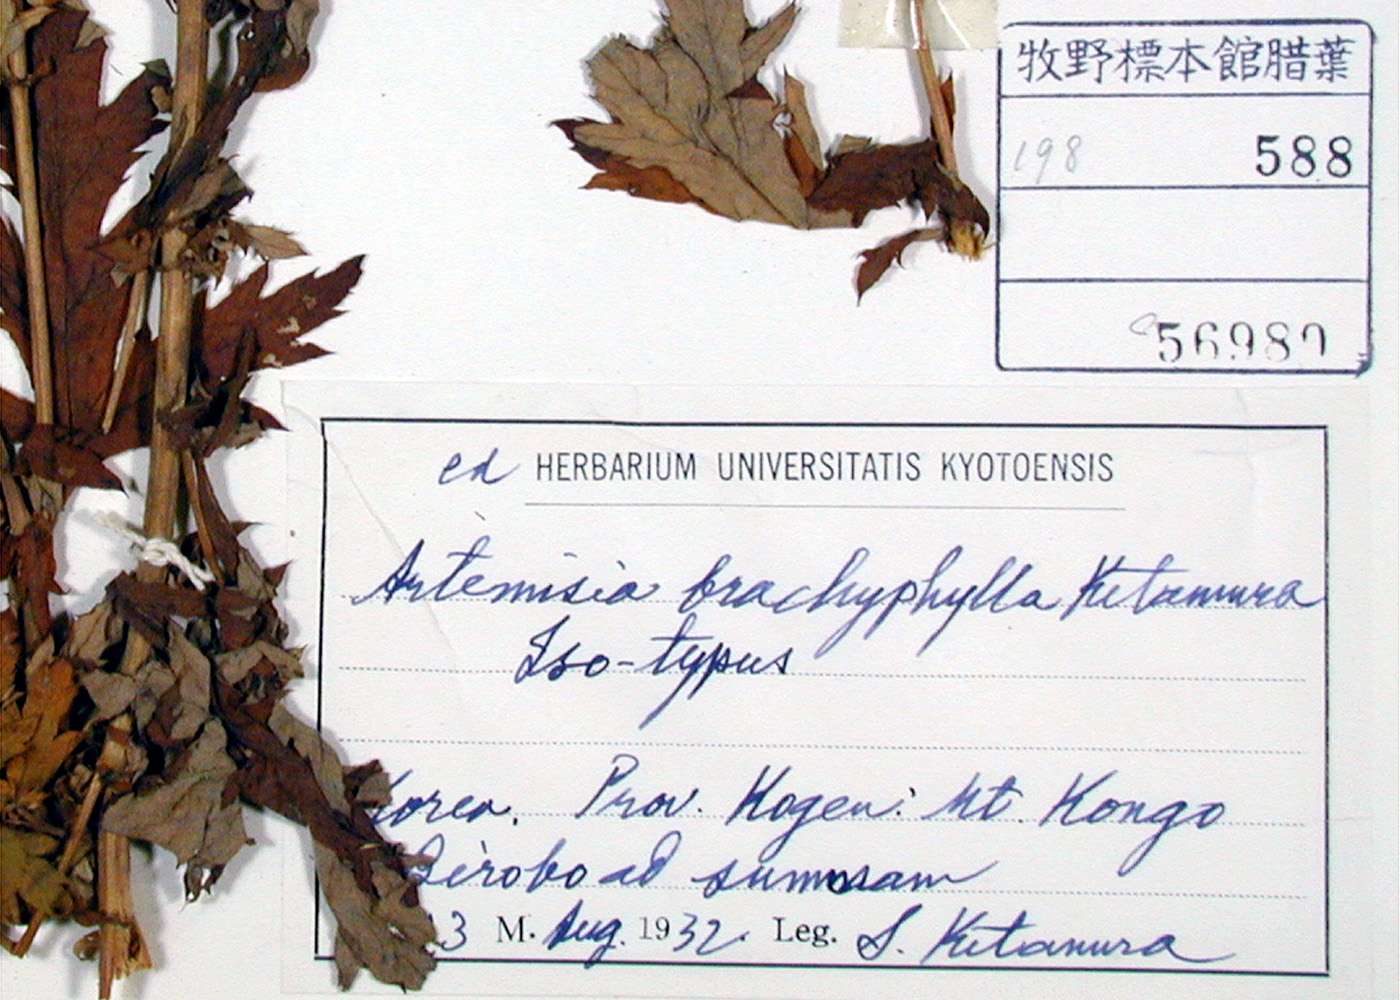 牧野標本館腊葉
198 588
56989
ed HERBARIUM UNIVERSITATIS KYOTOENSIS
Artemisia brachyphylla Kitamura
Iso-typus
Korea. Prov. Kogen: Mt. Kongo
Birobo ad summam
3 M. Aug. 1932. Leg. S. Kitamura